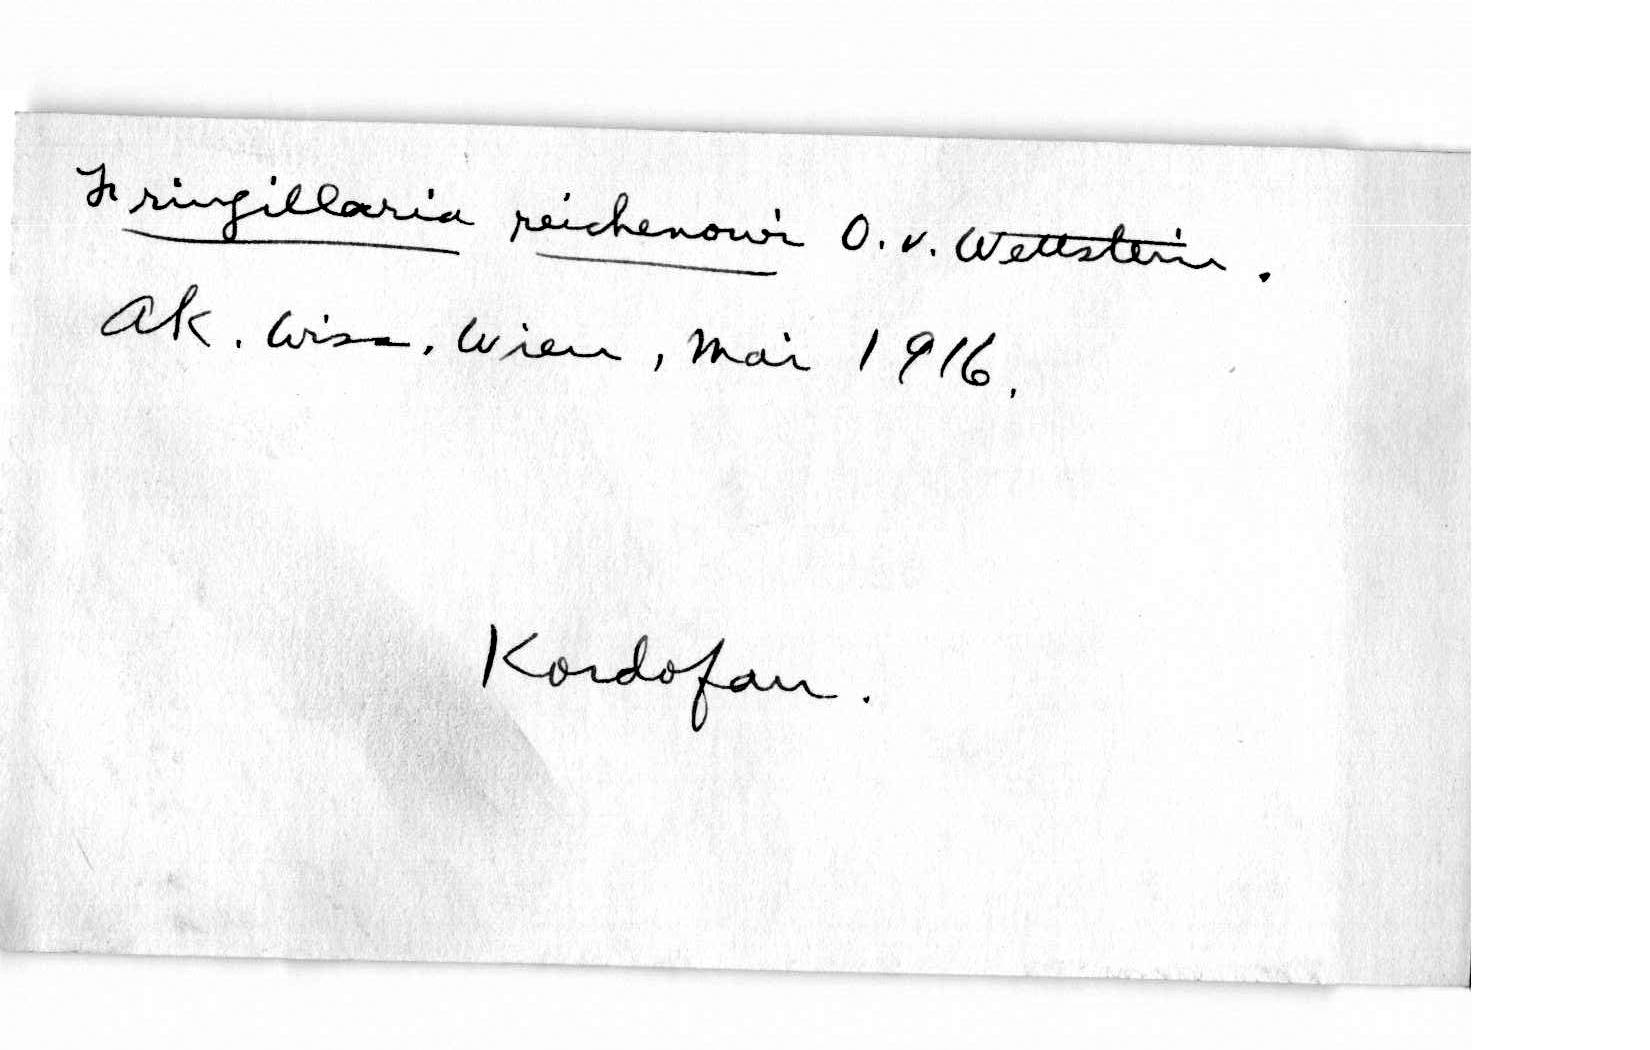 Fringillaria reichenowi O. v. Wettstein.
Ak. Wiss. Wien, Mai 1916.
Kordofan.